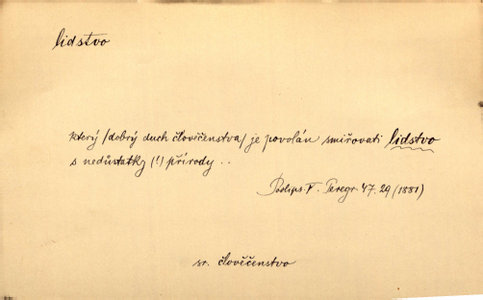 lidstvo
který /dobrý duch člověčenstva/ je povolán smiřovati lidstvo
s nedůstatky (!) přírody ..
Podlips. F. Peregr. 47. 29 (1881)
sr. člověčenstvo